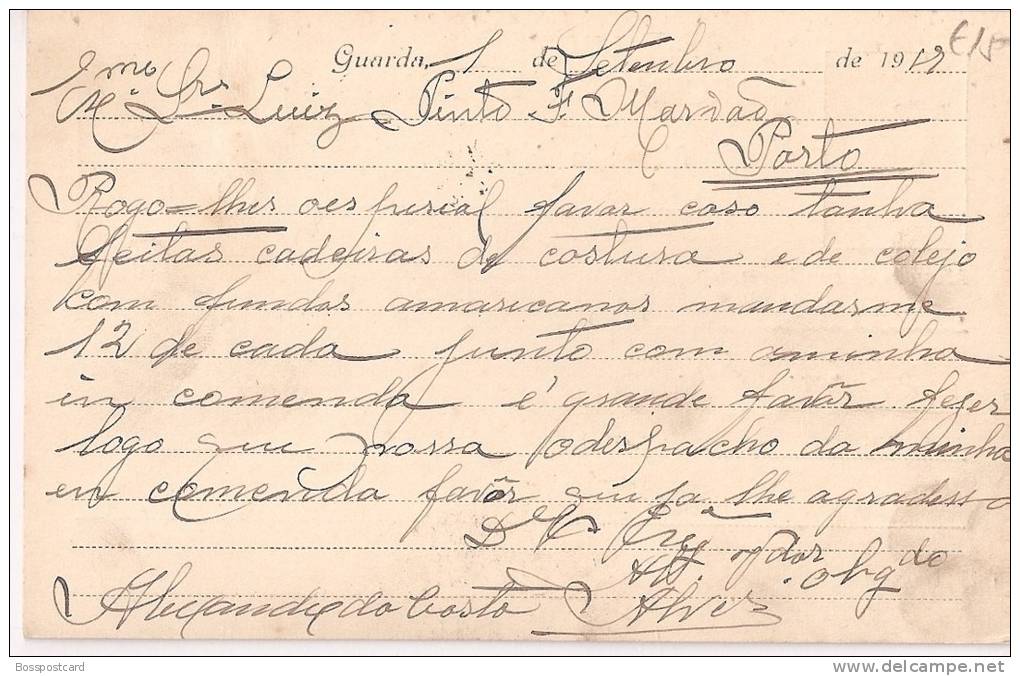 Guarda, 1 de Setembro de 1912 €15
Exmo Snr Luiz Pinto F. Mardão
Porto
Rogo=lhes o espesial favor caso tanha
feitas cadeiras de costura e de colejo
com fundos amaricanos mandarme
12 de cada junto com aminha
in comenda é grande favôr fezer
logo que possa odespacho da minha
en comenda favôr que ja lhe agradesso
De V.
Att. Obgdo
Alexandre da Costa Alves
Bosspostcard
www.delcampe.net